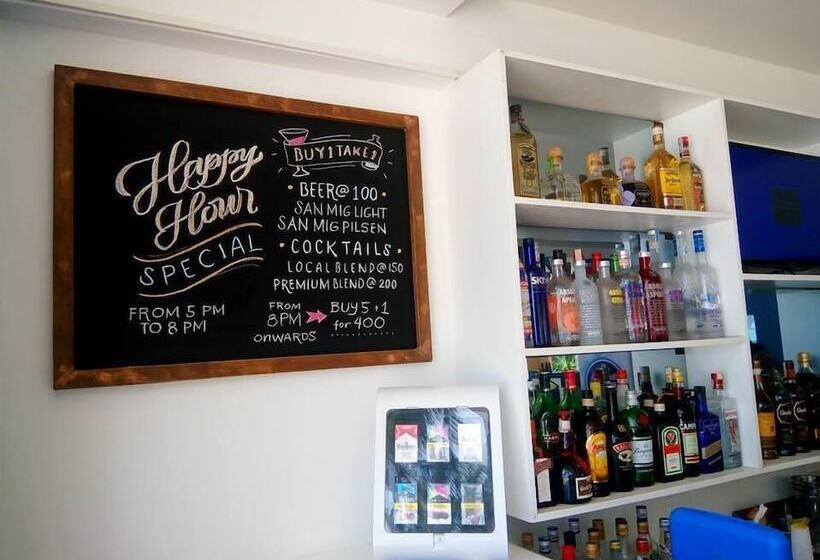 Happy
Hour
SPECIAL
FROM 5 PM
TO 8 PM
BUY 1 TAKE 1
• BEER @ 100 •
SAN MIG LIGHT
SAN MIG PILSEN
• COCKTAILS •
LOCAL BLEND @ 150
PREMIUM BLEND @ 200
FROM
8PM
ONWARDS
BUY 5 + 1
for 400
SKYY
ABSOLUT
CAMPARI
BAILEYS
Marlboro